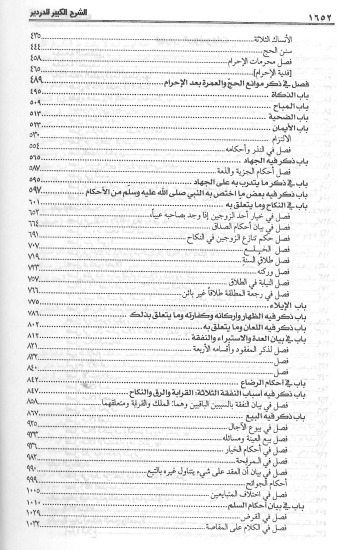 ١٦٥٢
الشرح الكبير للدردير
الأنساك الثلاثة ٤٣٥
سنن الحج ٤٤٤
فصل محرمات الإحرام ٤٥٨
[فدية الإحرام] ٤٦٥
فصل في ذكر موانع الحج والعمرة بعد الإحرام ٤٨٩
باب الذكاة ٤٩٥
باب المباح ٥٠٩
باب الضحية ٥١٣
باب الأيمان ٥٢٣
الالتزام ٥٣٠
فصل في النذر وأحكامه ٥٥٤
باب ذكر فيه الجهاد ٥٦٥
فصل أحكام الجزية ٥٨٧
باب في ذكر ما يتدرب به على الجهاد ٥٩٥
باب ذكر فيه بعض ما اختص به النبي صلى الله عليه وسلم من الأحكام ٥٩٧
باب في النكاح وما يتعلق به ٦٠١
فصل في خيار أحد الزوجين إذا وجد بصاحبه عيباً ٦٥٢
فصل في بيان أحكام الصداق ٦٦٤
فصل حكم تنازع الزوجين في النكاح ٦٩١
فصل الخلع ٧٠٧
فصل طلاق السنة ٧١٩
فصل وركنه ٧٢٣
فصل النيابة في الطلاق ٧٥٧
فصل في رجعة المطلقة طلاقاً غير بائن ٧٦٦
باب الإيلاء ٧٧٥
باب ذكر فيه الظهار وأركانه وكفارته وما يتعلق بذلك ٧٨٦
باب ذكر فيه اللعان وما يتعلق به ٨٠٢
باب في بيان العدة والاستبراء والنفقة ٨١٢
فصل لذكر المفقود وأقسامه الأربعة ٨٢١
فصل ٨٣٢
فصل ٨٤٠
باب في أحكام الرضاع ٨٤٢
باب ذكر فيه أسباب النفقة الثلاثة: القرابة والرق والنكاح ٨٤٧
فصل في بيان النفقة بالسببين الباقيين وهما: الملك والقرابة ومتعلقهما ٨٥٨
باب ذكر فيه البيع ٨٦٧
فصل في بيوع الآجال ٩٢٥
فصل بيع العينة ومسائله ٩٣٣
فصل في أحكام الخيار ٩٣٦
فصل في المرابحة ٩٨٢
فصل في بيان أن العقد على شيء يتناول غيره بالتبع ٩٩٠
أحكام الجوائح ٩٩٩
فصل في اختلاف المتبايعين ١٠٠٥
باب في بيان أحكام السلم ١٠١٠
فصل في القرض ١٠٢٩
فصل في الكلام على المقاصة ١٠٣٢